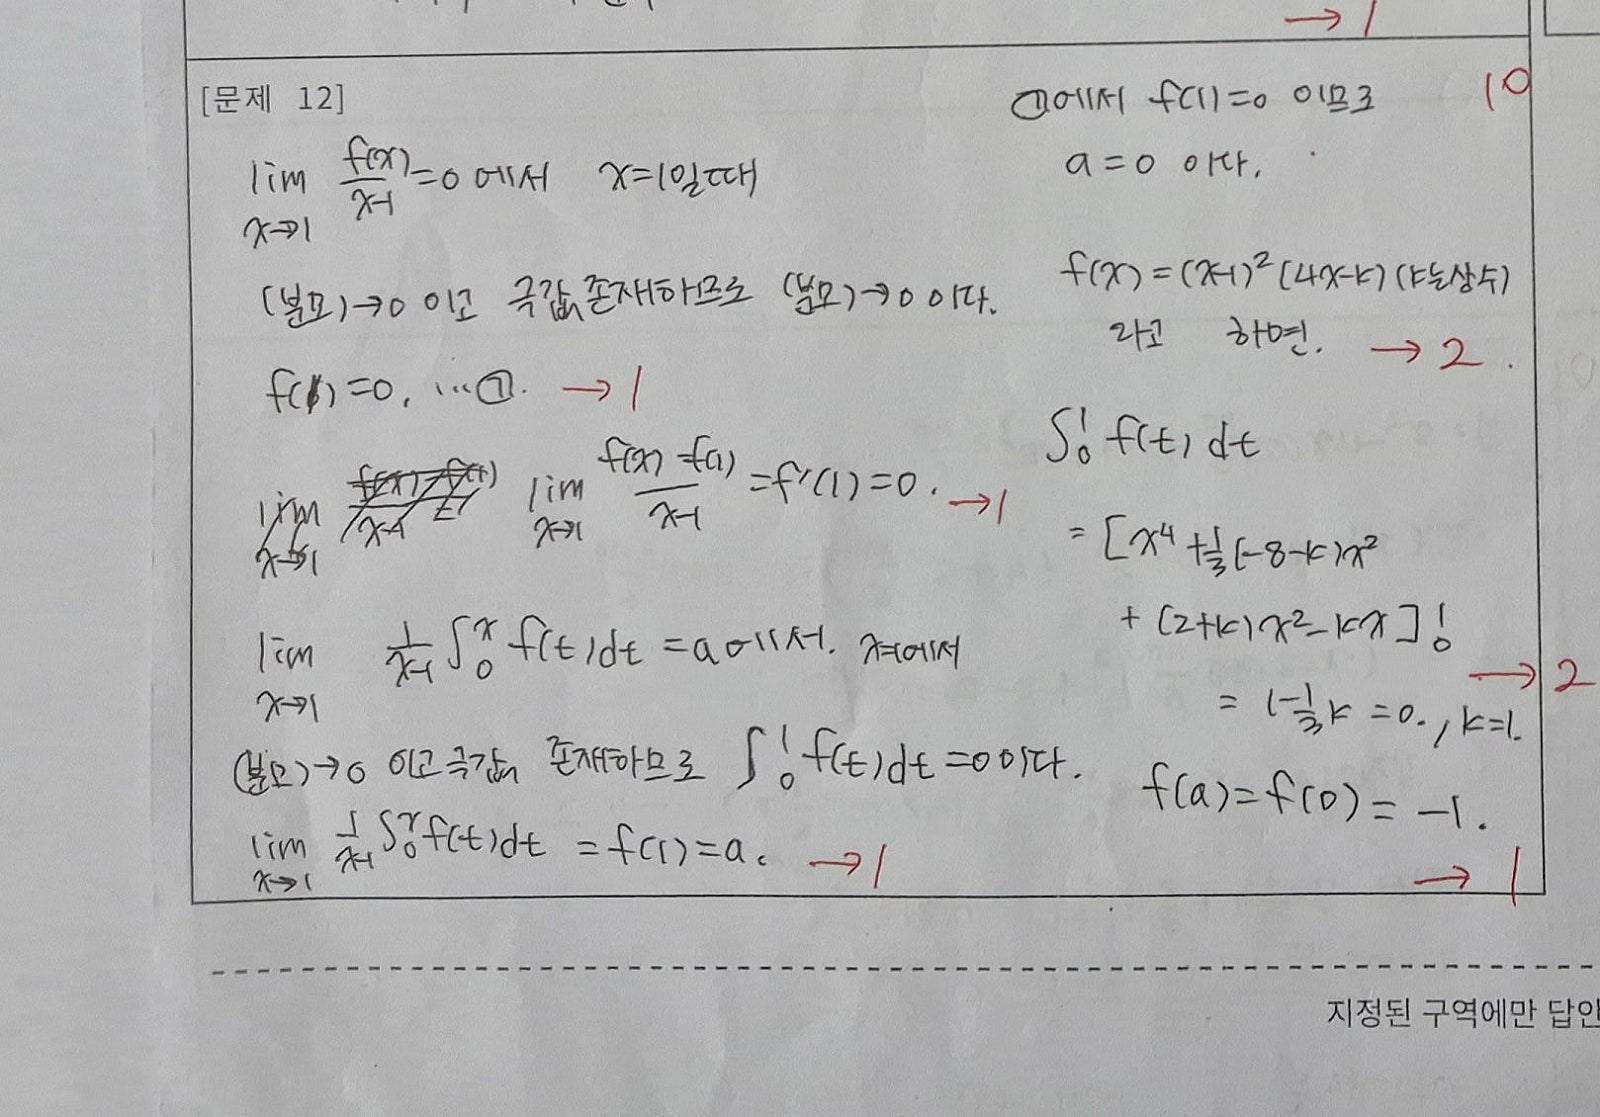 → 1
[문제 12]
lim x→1 f(x)/x-1 = 0 에서 x=1일때
(분모)→0 이고 극값 존재하므로 (분모)→0 이다.
f(1)=0, …①. → 1
lim x→1 f(x)-f(1)/x-1 = f'(1)=0. → 1
lim x→1 1/x-1 ∫₀ˣ f(t)dt = a에서. x=1에서
(분모)→0 이고 극값 존재하므로 ∫₀¹ f(t)dt=0이다.
lim x→1 1/x-1 ∫₀ˣ f(t)dt = f(1)=a. → 1
①에서 f(1)=0 이므로 10
a=0 이다.
f(x)=(x-1)²(4x-k) (k는상수)
라고 하면. → 2.
∫₀¹ f(t)dt
= [x⁴+1/3(-8-k)x²
+(2+k)x²-kx]₀¹
→ 2
= 1-1/3k=0., k=1.
f(a)=f(0)=-1.
→ 1
지정된 구역에만 답안